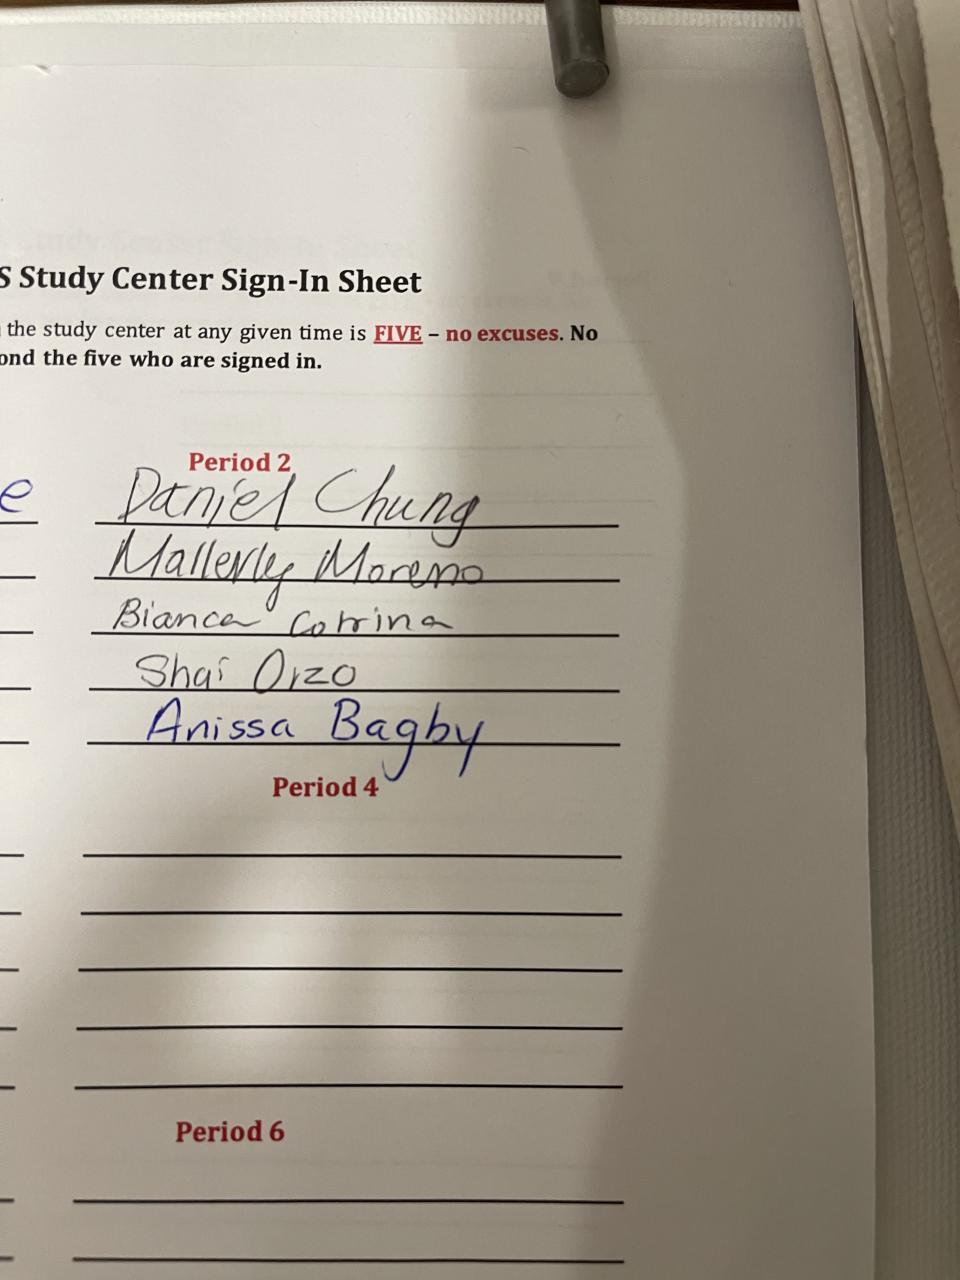 S Study Center Sign-In Sheet
the study center at any given time is FIVE – no excuses. No
ond the five who are signed in.
Period 2
e Daniel Chung
Mallerly Moreno
Bianca Cotrina
Shai Orzo
Anissa Bagby
Period 4
Period 6